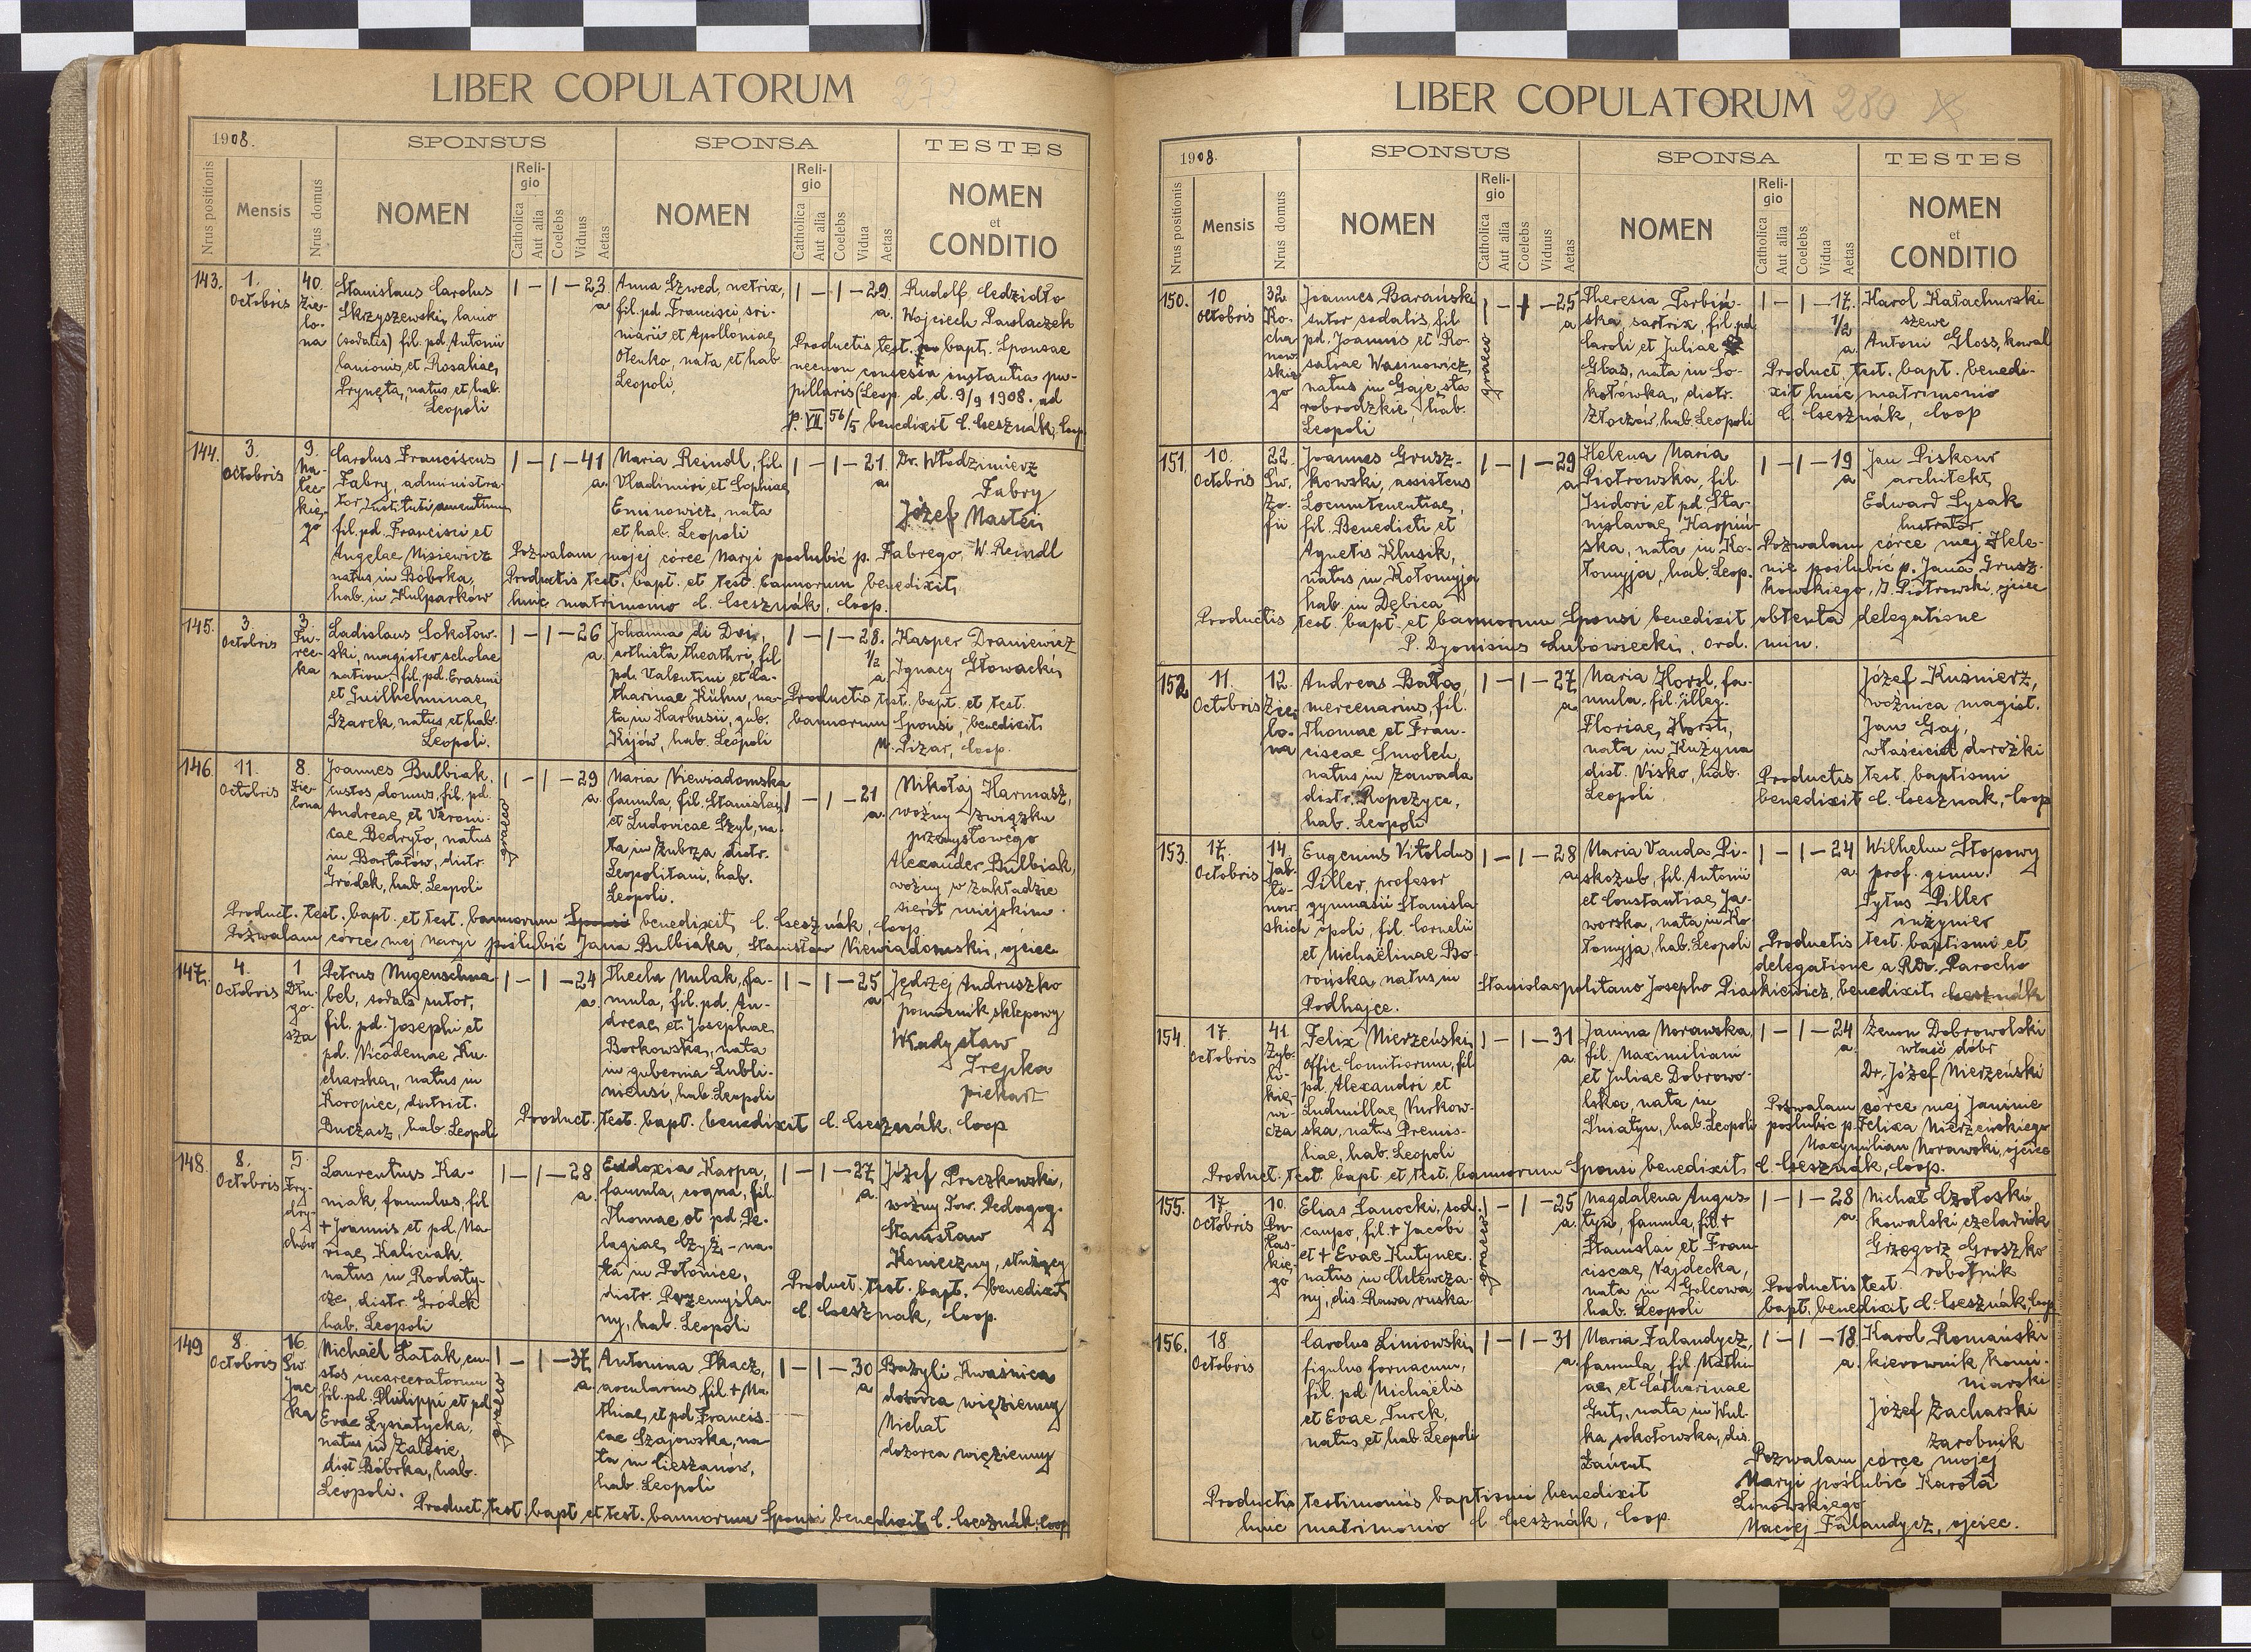 LIBER COPULATORUM
1908.
SPONSUS
SPONSA
TESTES
Nrus positionis
Mensis
Nrus domus
NOMEN
Religio
Catholica
Aut alia
Coelebs
Viduus
Aetas
NOMEN
Religio
Catholica
Aut alia
Coelebs
Vidua
Aetas
NOMEN
et
CONDITIO
143.
1.
Octobris
40.
Zie-
lo-
na
Stanislaus Carolus
Skrzyszewski, lanio
(sodalis) fil. pd. Antonii
lanionis, et Rosaliae,
Prynęta, natus et hab.
Leopoli
1 — 1 — 23
a
Anna Szwed, netrix,
fil. pd. Francisci, scri-
niarii et Apolloniae,
Olenko, nata et hab.
Leopoli
1 — 1 — 29
a.
Rudolf Cedzidło
Wojciech Pawlaczek
Productis test. bapt. Sponsae
necnon consessa instantia pu-
pillaris (Leop. d. d. 9/9 1908. ad
p. VII 56/5 benedixit C. Csesznák, Coop.
144.
3.
Octobris
9.
Na-
bie-
kie-
go
Carolus Franciscus
Fabry, administra-
tor Instituti amentium
fil. pd. Francisci et
Angelae Misiewicz
natus in Bóbrka,
hab. in Kulparków
1 — 1 — 41
a.
Maria Reindl, fil.
Vladimiri et Sophiae
Eminowicz, nata
et hab. Leopoli
1 — 1 — 21
a.
Dr. Włodzimierz
Fabry
Józef Mastei
Pozwalam mojej córce Maryi poślubić p. Fabrego, W. Reindl
Productis test. bapt. et test. bannorum benedixit
huic matrimonio C. Csesznák, Coop.
145.
3.
Octobris
3.
Tu-
rec-
ka
Ladislaus Sokołow-
ski, magister scholae
nation. fil. pd. Erasmi
et Guilhelminae,
Szarek, natus et hab.
Leopoli.
1 — 1 — 26
a.
Johanna di Doi,
arthista theathri, fil.
pd. Valentini et Ca-
tharinae Kühn, na-
ta in Harbusii, gub.
Kijów, hab. Leopoli
1 — 1 — 28.
1/2
a
Kasper Draniewicz
Ignacy Głowacki
Productis test. bapt. et test.
bannorum Sponsi, benedixit
M. Pizar, Coop.
146.
11.
Octobris
8.
Zie-
lona
Joannes Bulbiak,
custos domus, fil. pd.
Andreae, et Veroni-
cae Bedryło, natus
in Bartatów, distr.
Gródek, hab. Leopoli
graeco
1 — 1 — 29
a.
Maria Niewiadomska
famula, fil. Stanislai,
et Ludovicae Szyl, na-
ta in Zubrza distr.
Leopolitani, hab.
Leopoli.
1 — 1 — 21
a.
Mikołaj Harmasz,
woźny związku
przemysłowego
Alexander Bulbiak,
woźny w zakładzie
sierót miejskim.
Product. test. bapt. et test. bannorum Sponsi benedixit, C. Csesznák, Coop
Pozwalam córce mej Maryi poślubić Jana Bulbiaka, Stanisław Niewiadomski, ojciec
147.
4.
Octobris
1
Dłu-
go-
sza
Petrus Mugenschna-
bel, sodalis sutor,
fil. pd. Josephi et
pd. Nicodemae Ku-
charska, natus in
Koropiec, district.
Buczacz, hab. Leopoli
1 — 1 — 24
a.
Thecla Mulak, fa-
mula, fil. pd. An-
dreae, et Josephae
Borkowska, nata
in gubernia Lubli-
niensi, hab. Leopoli
1 — 1 — 25
a
Jędrzej Andruszko
pomocnik sklepowy
Władysław
Trepka
piekarz
Product. test. bapt. benedixit C. Csesznák, Coop
148.
8.
Octobris
5.
Fry-
dry-
chów
Laurentius Ka-
niak, famulus, fil.
+ Joannis et pd. Ma-
riae, Kaliciak,
natus in Rodaty-
cze, distr. Gródek
hab. Leopoli
1 — 1 — 28
a.
Eudoxia Karpa,
famula, cogna, fil.
Thomae et pd. Pe-
lagiae, Czyż — na-
ta in Połonice,
distr. Przemyśla-
ny, hab. Leopoli
1 — 1 — 27
a.
Józef Proczkowski,
woźny Tow. Pedagog.
Stanisław
Konieczny, służący
Product. test. bapt. benedixit
C. Csesznak, Coop.
149
8.
Octobris
16.
Św.
Jac-
ka
Michaël Łatak, cu-
stos incarceratorum
fil. pd. Philippi et pd.
Evae Łysiatycka,
natus in Zalesie,
dist. Bóbrka, hab.
Leopoli.
graeco
1 — 1 — 37
a.
Antonina Tkacz,
arcularius fil + Ma-
thiae, et pd. Francis-
cae Szajowska, na-
ta in Cieszanów,
hab. Leopoli
1 — 1 — 30
a
Bazyli Kwaśnica
dozorca więzienny
Michał
dozorca więzienny
Product. test. bapt. et test. bannorum Sponsi benedixit C. Csesznák, Coop
LIBER COPULATORUM
280
1908.
SPONSUS
SPONSA
TESTES
Nrus positionis
Mensis
Nrus domus
NOMEN
Religio
Catholica
Aut alia
Coelebs
Viduus
Aetas
NOMEN
Religio
Catholica
Aut alia
Coelebs
Vidua
Aetas
NOMEN
et
CONDITIO
150.
10
Octobris
32.
Ko-
cha
now-
skie-
go
Joannes Barański
sutor sodalis, fil.
pd. Joannis et Ro-
saliae Wasinowicz,
natus in Gaje sta
robrodzkie, hab.
Leopoli
graeco
1 — 1 — 25
a
Theresia Torbiń-
ska, sartrix, fil. pd.
Caroli et Juliae
Głas, nata in So-
kołówka, distr.
Złoczów, hab. Leopoli
1 — 1 — 17.
1/2
a.
Karol Kałachurski
szewc
Antoni Gloss, kowal
Product. test. bapt. benedi-
xit huic matrimonio
C. Csesznák, Coop
151.
10.
Octobris
22.
Św.
Zo-
fii
Joannes Grusz-
kowski, assistens
Locumtenentiae,
fil. Benedicti et
Agnetis Klusik,
natus in Kołomyja
hab. in Dębica
1 — 1 — 29
a
Helena Maria
Piotrowska, fil.
Isidori et pd. Sta-
nislavae, Karpiń-
ska, nata in Ko-
łomyja, hab. Leop.
1 — 1 — 19
a
Jan Piskowr
architekt
Edward Lysak
lustrator
Pozwalam córce mej Hele-
nie poślubić p. Jana Grusz-
kowskiego, I. Piotrowski, ojciec
Productis test. bapt. et bannorum Sponsi benedixit obtenta delegatione
P. Dyonisius Lubowiecki, Ord. min.
152
11.
Octobris
12.
Zie-
lo-
na
Andreas Bata,
mercenarius, fil.
Thomae et Fran-
ciscae Smoleń
natus in Zawada
distr. Ropczyce,
hab. Leopoli
1 — 1 — 27
a.
Maria Horst, fa-
mula, fil. illeg.
Floriae, Horst,
nata in Kuzyna
dist. Nisko, hab.
Leopoli.
Józef Kuśnierz,
woźnica magist.
Jan Gaj,
właściciel dorożki
Productis test. baptismi
benedixit C. Csesznak, Coop
153.
17.
Octobris
14.
Jab-
ło-
now-
skich
Eugenius Vitoldus
Piller, profesor
gymnasii Stanisla
opoli, fil. Cornelii
et Michaëlinae Bo-
rońska, natus in
Podhajce.
1 — 1 — 28
a
Maria Vanda Pi-
skozub, fil. Antonii
et Constantiae, Ja-
worska, nata in Ko-
łomyja, hab. Leopoli
1 — 1 — 24
a.
Wilhelm Stopowy
prof. gimn.
Tytus Piller
inżynier
Productis test. baptismi et
delegatione a RDo. Parocho
Stanislaopolitano Josepho Piaskiewicz, benedixit Csesznák
154.
17.
Octobris
41.
Zyb-
li-
kie-
wi-
cza
Felix Mierzeński,
offic. Comitiorum, fil.
pd. Alexandri et
Ludmillae, Nurkow-
ska, natus Premis-
liae, hab. Leopoli
1 — 1 — 31
a.
Janina Morawska,
fil. Maximiliani
et Juliae Dobrowo-
lska, nata in
Śniatyn, hab. Leopoli
1 — 1 — 24
a.
Zenon Dobrowolski
właść dóbr
Dr. Józef Mierzeński
Pozwalam córce mej Janinie
poślubić p. Felixa Mierzeńskiego
Maxymilian Morawski, ojciec
Product. test. bapt. et test. bannorum Sponsi benedixit, C. Csesznák, Coop.
155.
17
Octobris
10.
Pu-
łas-
kie-
go
Elias Sanocki, sod.
caupo, fil. + Jacobi
et + Evae Kutynec.
natus in Chlewcza-
ny, dis. Rawa ruska
graeco
1 — 1 — 25
a.
Magdalena Augus
tyn, famula, fil. +
Stanislai et Fran-
ciscae, Najdecka,
nata in Golcowa
hab. Leopoli
1 — 1 — 28
a.
Michał Czołoski
kowalski czeladnik
Grzegorz Groszko
robotnik
Productis test.
bapt. benedixit C. Csesznák, Coop
156.
18
Octobris
Carolus Liniowski,
figulus fornacum,
fil. pd. Michaëlis
et Evae Turek,
natus et hab. Leopoli
1 — 1 — 31
a.
Maria Falandycz,
famula, fil. Mathi
ae, et Catharinae
Gut, nata in Wul-
ka sokołowska, dis.
Łańcut
1 — 1 — 18
a.
Karol Romański
kierownik komi-
niarski
Józef Zacharski
zarobnik
Pozwalam córce mojej
Maryi poślubić Karola
Linowskiego
Maciej Falandycz, ojciec.
Productis testimoniis baptismi benedixit
huic matrimonio C Csesznák, Coop.